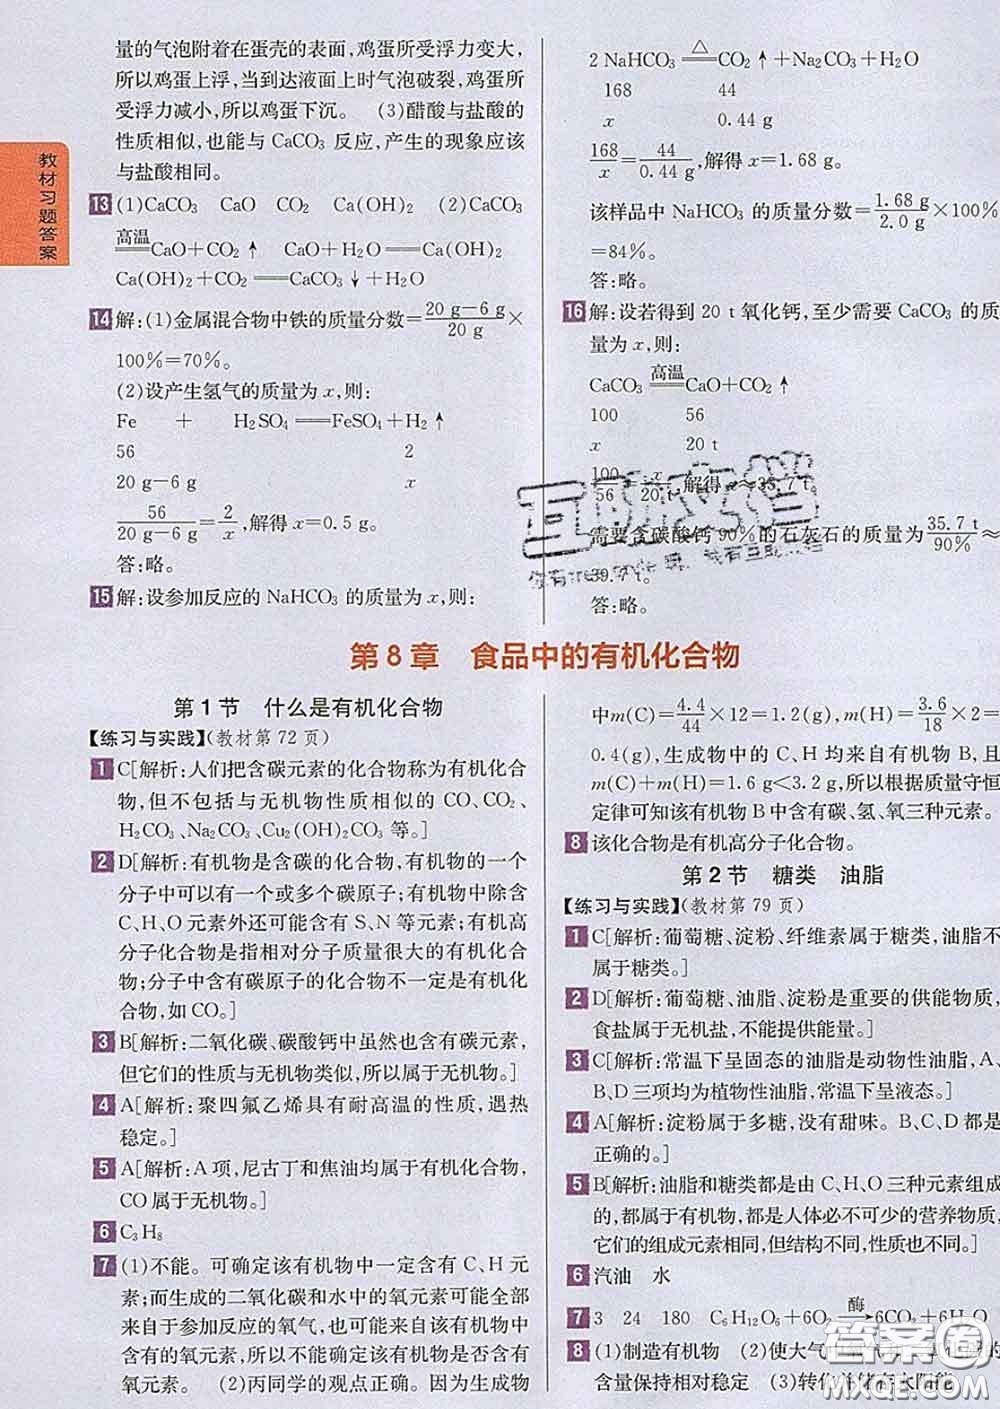 教材习题答案
量的气泡附着在蛋壳的表面,鸡蛋所受浮力变大,
所以鸡蛋上浮,当到达液面上时气泡破裂,鸡蛋所
受浮力减小,所以鸡蛋下沉。 (3)醋酸与盐酸的
性质相似,也能与 CaCO₃ 反应,产生的现象应该
与盐酸相同。
13 (1)CaCO₃ CaO CO₂ Ca(OH)₂ (2)CaCO₃
高温
══CaO+CO₂↑ CaO+H₂O══Ca(OH)₂
Ca(OH)₂+CO₂══CaCO₃↓+H₂O
14 解:(1)金属混合物中铁的质量分数=(20 g-6 g)/(20 g)×
100%=70%。
(2)设产生氢气的质量为 x,则:
Fe + H₂SO₄══FeSO₄+H₂↑
56 2
20 g-6 g x
56/(20 g-6 g)=2/x,解得 x=0.5 g。
答:略。
15 解:设参加反应的 NaHCO₃ 的质量为 x,则:
△
2 NaHCO₃══CO₂↑+Na₂CO₃+H₂O
168 44
x 0.44 g
168/x=44/(0.44 g),解得 x=1.68 g。
该样品中 NaHCO₃ 的质量分数=(1.68 g)/(2.0 g)×100%
=84%。
答:略。
16 解:设若得到 20 t 氧化钙,至少需要 CaCO₃ 的质
量为 x,则:
高温
CaCO₃══CaO+CO₂↑
100 56
x 20 t
100/56=x/(20 t),解得 x≈35.7 t。
需要含碳酸钙 90%的石灰石的质量为(35.7 t)/(90%)≈
39.7 t。
答:略。
第 8 章 食品中的有机化合物
第 1 节 什么是有机化合物
【练习与实践】(教材第 72 页)
1 C[解析:人们把含碳元素的化合物称为有机化合
物,但不包括与无机物性质相似的 CO、CO₂、
H₂CO₃、Na₂CO₃、Cu₂(OH)₂CO₃ 等。]
2 D[解析:有机物是含碳的化合物;有机物的一个
分子中可以有一个或多个碳原子;有机物中除含
C、H、O 元素外还可能含有 S、N 等元素;有机高
分子化合物是指相对分子质量很大的有机化合
物;分子中含有碳原子的化合物不一定是有机化
合物,如 CO。]
3 B[解析:二氧化碳、碳酸钙中虽然也含有碳元素,
但它们的性质与无机物类似,所以属于无机物。]
4 A[解析:聚四氟乙烯具有耐高温的性质,遇热
稳定。]
5 A[解析:A 项,尼古丁和焦油均属于有机化合物,
CO 属于无机物。]
6 C₃H₈
7 (1)不能。可确定该有机物中一定含有 C、H 元
素;而生成的二氧化碳和水中的氧元素可能全部
来自于参加反应的氧气,也可能来自该有机物中
含有的氧元素,所以不能确定该有机物中一定含有
氧元素。 (2)丙同学的观点正确。因为生成物
中m(C)=4.4/44×12=1.2(g),m(H)=3.6/18×2=
0.4(g),生成物中的 C、H 均来自有机物 B,且
m(C)+m(H)=1.6 g<3.2 g,所以根据质量守恒
定律可知该有机物 B 中含有碳、氢、氧三种元素。
8 该化合物是有机高分子化合物。
第 2 节 糖类 油脂
【练习与实践】(教材第 79 页)
1 C[解析:葡萄糖、淀粉、纤维素属于糖类,油脂不
属于糖类。]
2 D[解析:葡萄糖、油脂、淀粉是重要的供能物质,
食盐属于无机盐,不能提供能量。]
3 C[解析:常温下呈固态的油脂是动物性油脂,A、
B、D 三项均为植物性油脂,常温下呈液态。]
4 A[解析:淀粉属于多糖,没有甜味。B、C、D 是
正确的。]
5 B[解析:油脂和糖类都是由 C、H、O 三种元素组成
的,都属于有机物,都是人体必不可少的营养物质,
它们的组成元素相同,但结构不同,性质也不同。]
6 汽油 水
7 3 24 180 C₆H₁₂O₆+6O₂ 酶→6CO₂+6H₂O
8 (1)制造有机物 (2)使大气
含量保持相对稳定 (3)转化并储存太阳能
互助文档
答案圈
MXQE.COM